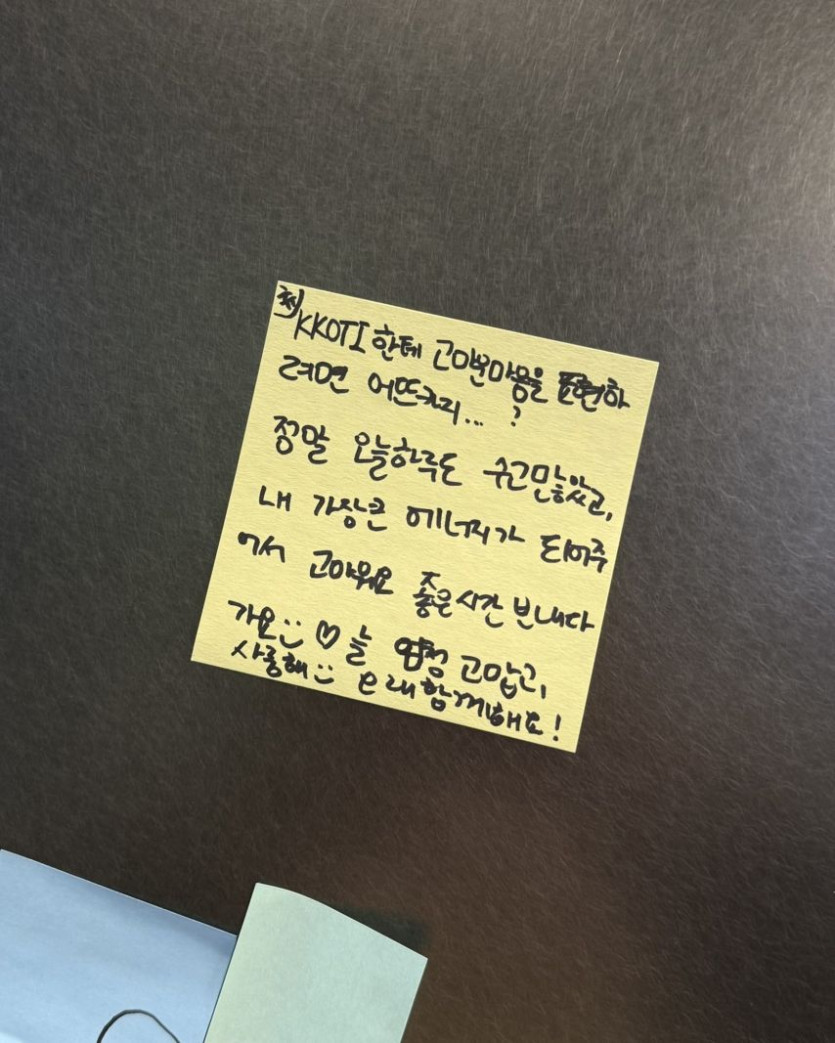 KKOTI한테 고마운마음을 표현하
려면 어뜨카지...?
정말 오늘하루도 수고많았고,
내 가장큰 에너지가 되어주
어서 고마워요 좋은시간 보내다
가요 ♡ 늘 엄청 고맙고,
사랑해 오래 함께해요!